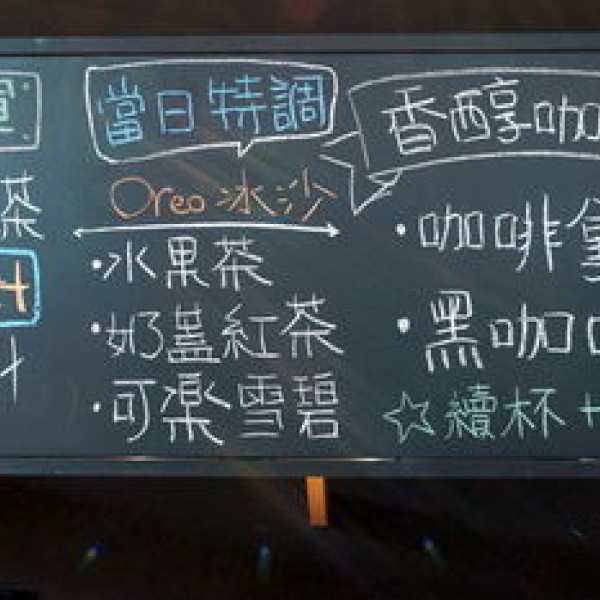 當日特調
Oreo冰沙
水果茶
奶蓋紅茶
可樂雪碧
香醇咖
咖啡
黑咖
☆續杯+
茶